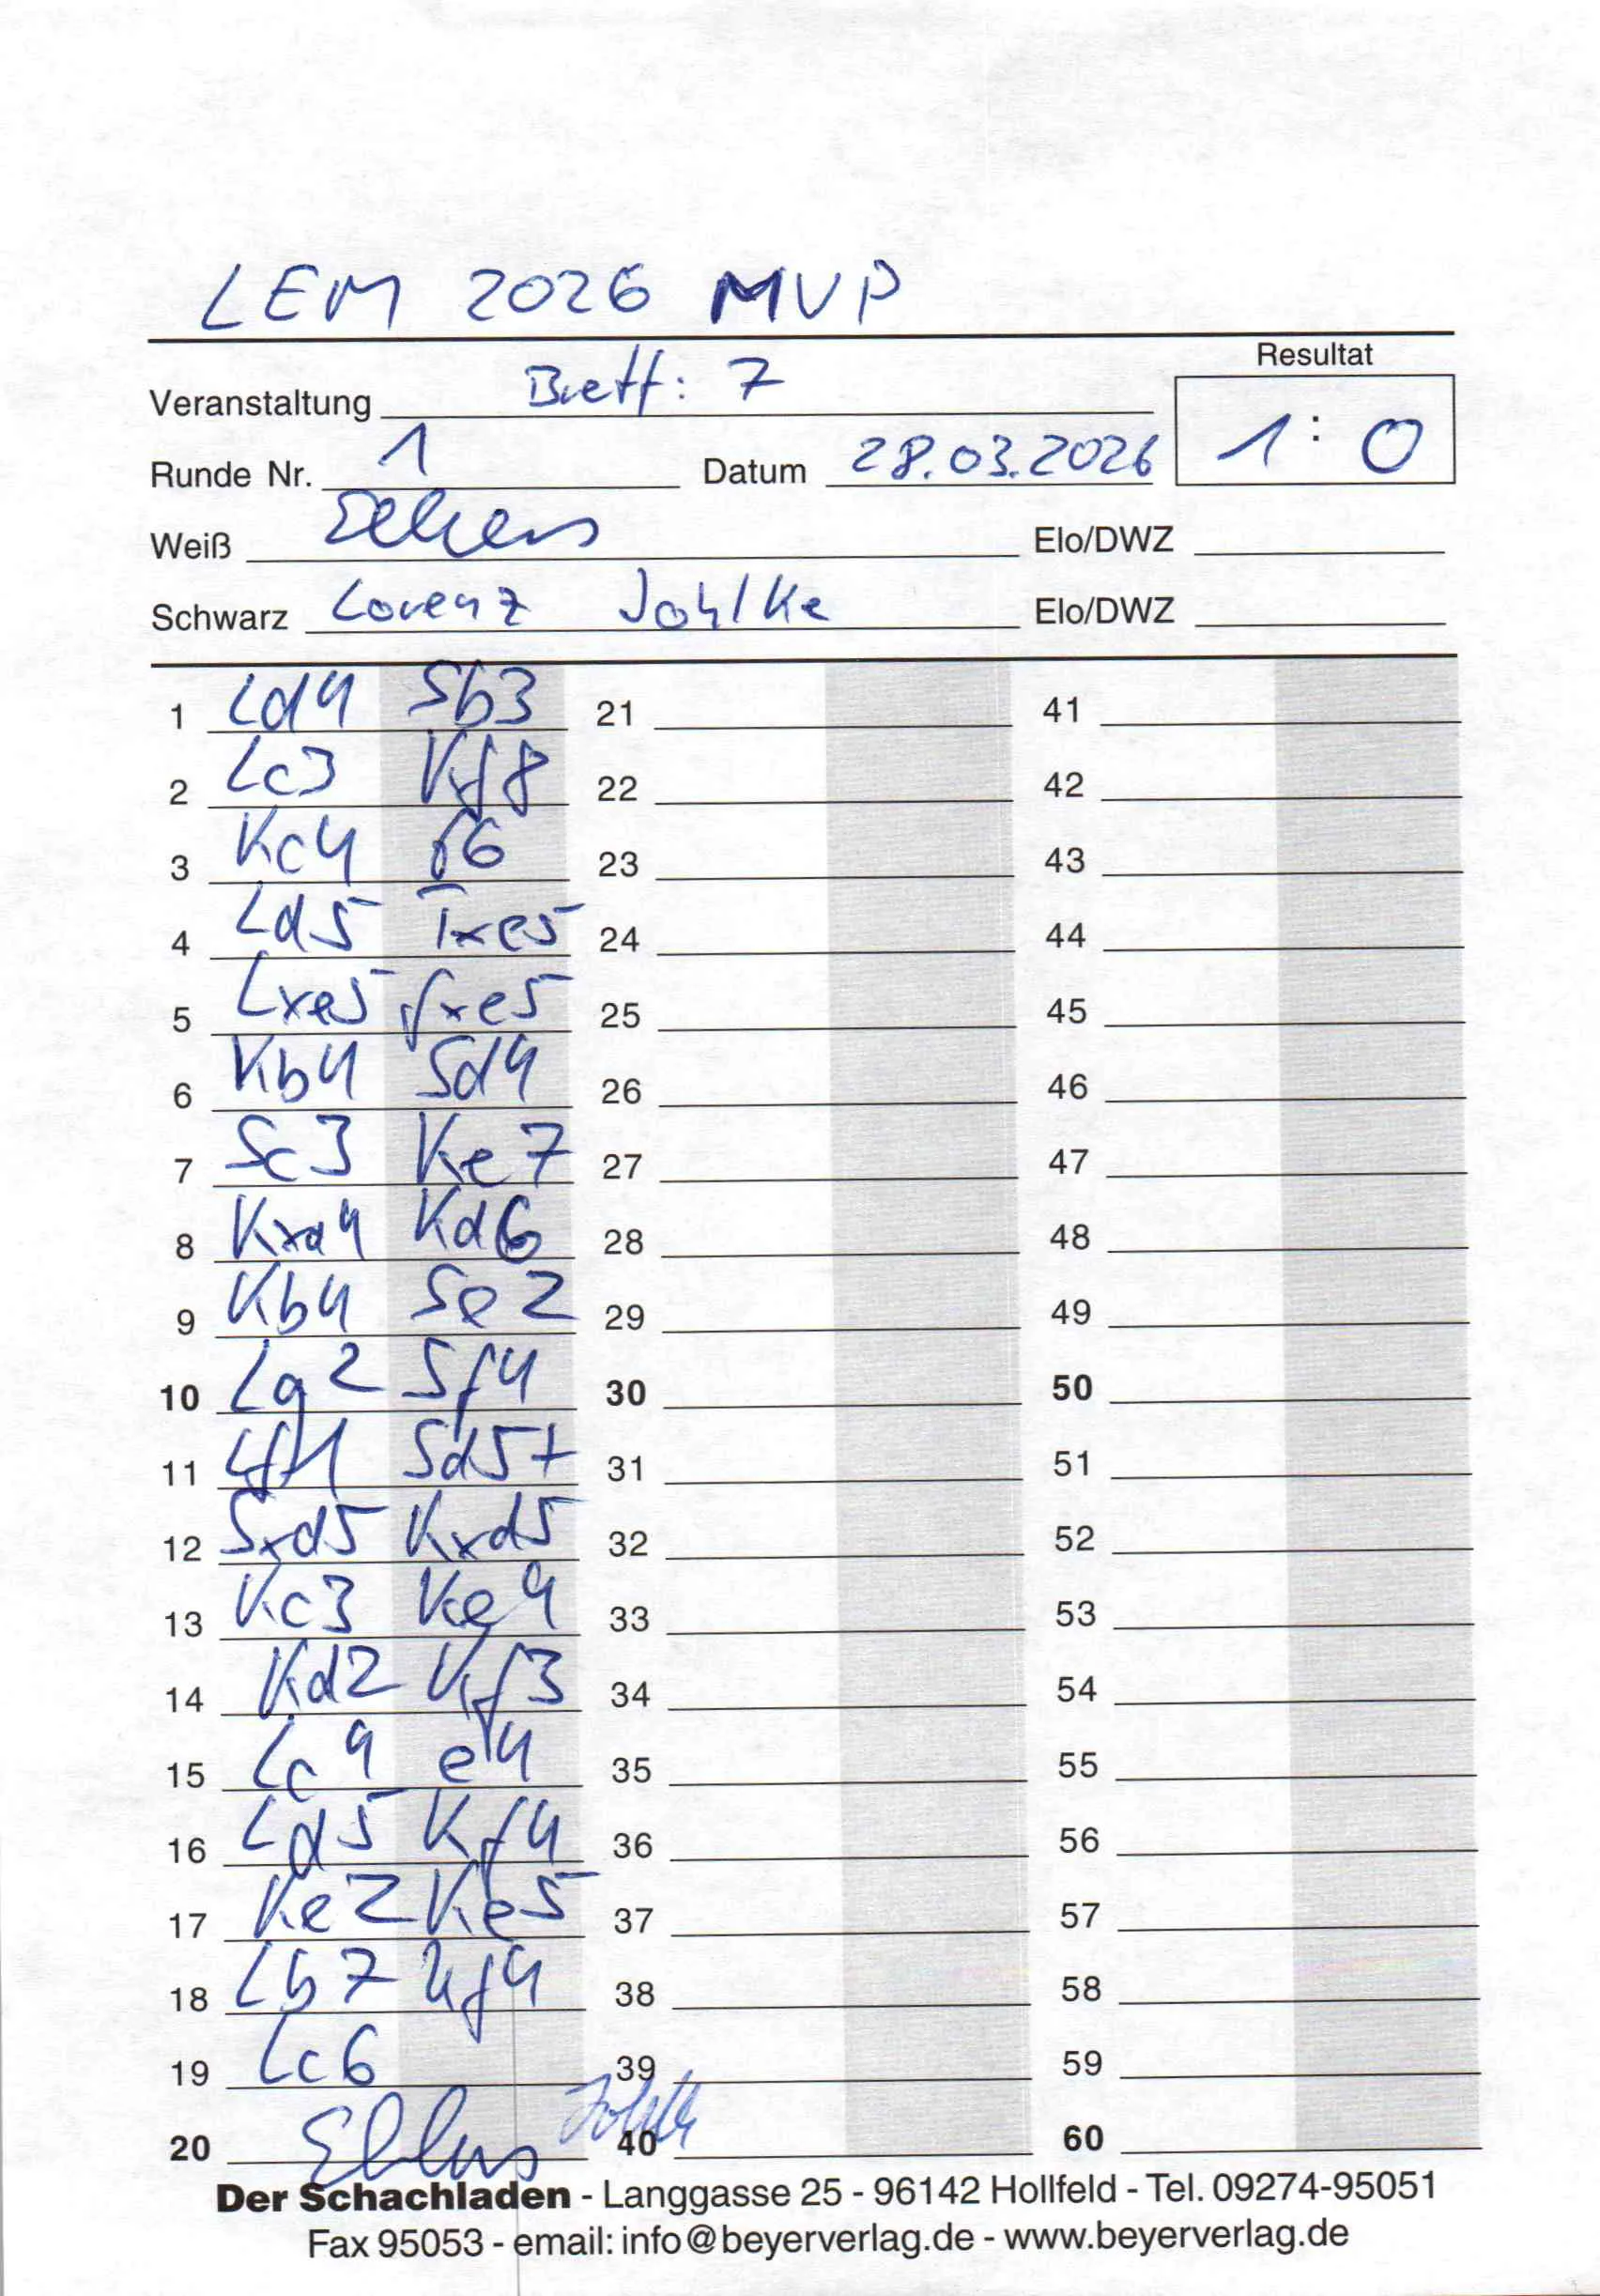 LEM 2026 MVP
Resultat
Veranstaltung Brett: 7
1 : 0
Runde Nr. 1 Datum 28.03.2026
Weiß Elo/DWZ
Schwarz Lorenz Johlke Elo/DWZ
1 Ld4 Sb3 21 41
2 Lc3 Kf8 22 42
3 Kc4 f6 23 43
4 Ld5 Txe5 24 44
5 Lxe5 fxe5 25 45
6 Kb4 Sd4 26 46
7 Sc3 Ke7 27 47
8 Kxa4 Kd6 28 48
9 Kb4 Se2 29 49
10 Lg2 Sf4 30 50
11 Lf1 Sd5+ 31 51
12 Sxd5 Kxd5 32 52
13 Kc3 Ke4 33 53
14 Kd2 Kf3 34 54
15 Lc4 e4 35 55
16 Ld5 Kf4 36 56
17 Ke2 Ke5 37 57
18 Lb7 Kf4 38 58
19 Lc6 39 59
20 40 60
Der Schachladen - Langgasse 25 - 96142 Hollfeld - Tel. 09274-95051
Fax 95053 - email: info@beyerverlag.de - www.beyerverlag.de